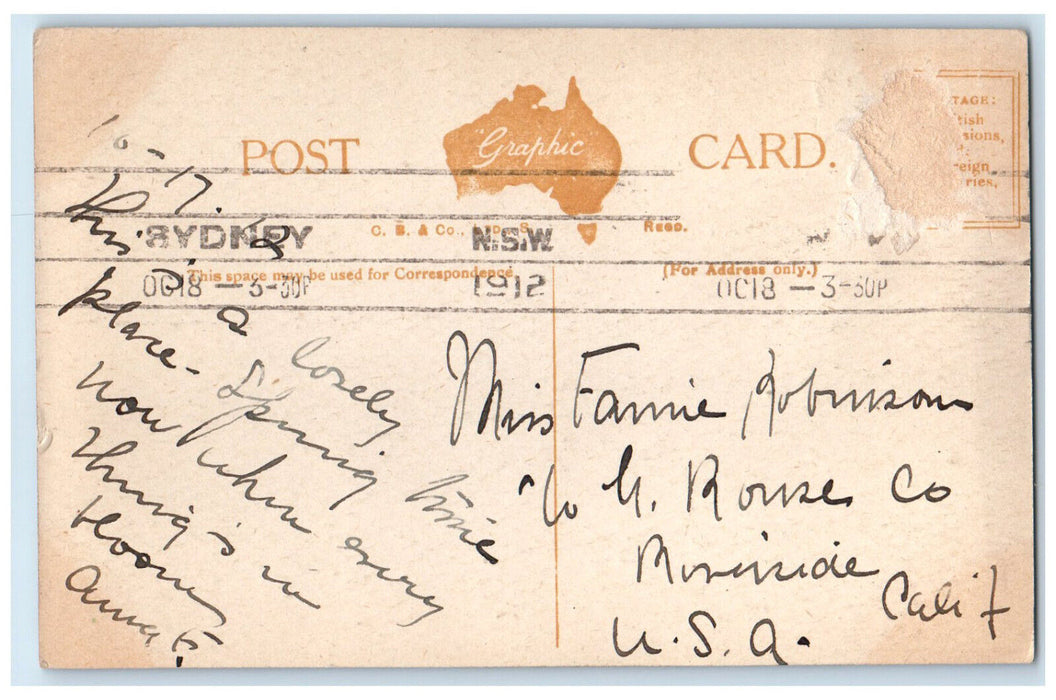 POST "Graphic" CARD.
TAGE:
tish
sions,
eign
ries,
SYDNEY N.S.W.
C. B. & Co., SYD REGD.
This space may be used for Correspondence
(For Address only.)
OC18 — 3-30P 1912 OC18 — 3-30P
10 - 17.
This is a lovely
place. Spring time
now when every
thing's in
bloom
Anna F.
Miss Fannie Robinson
c/o G. Rouse Co
Riverside
Calif
U.S.A.